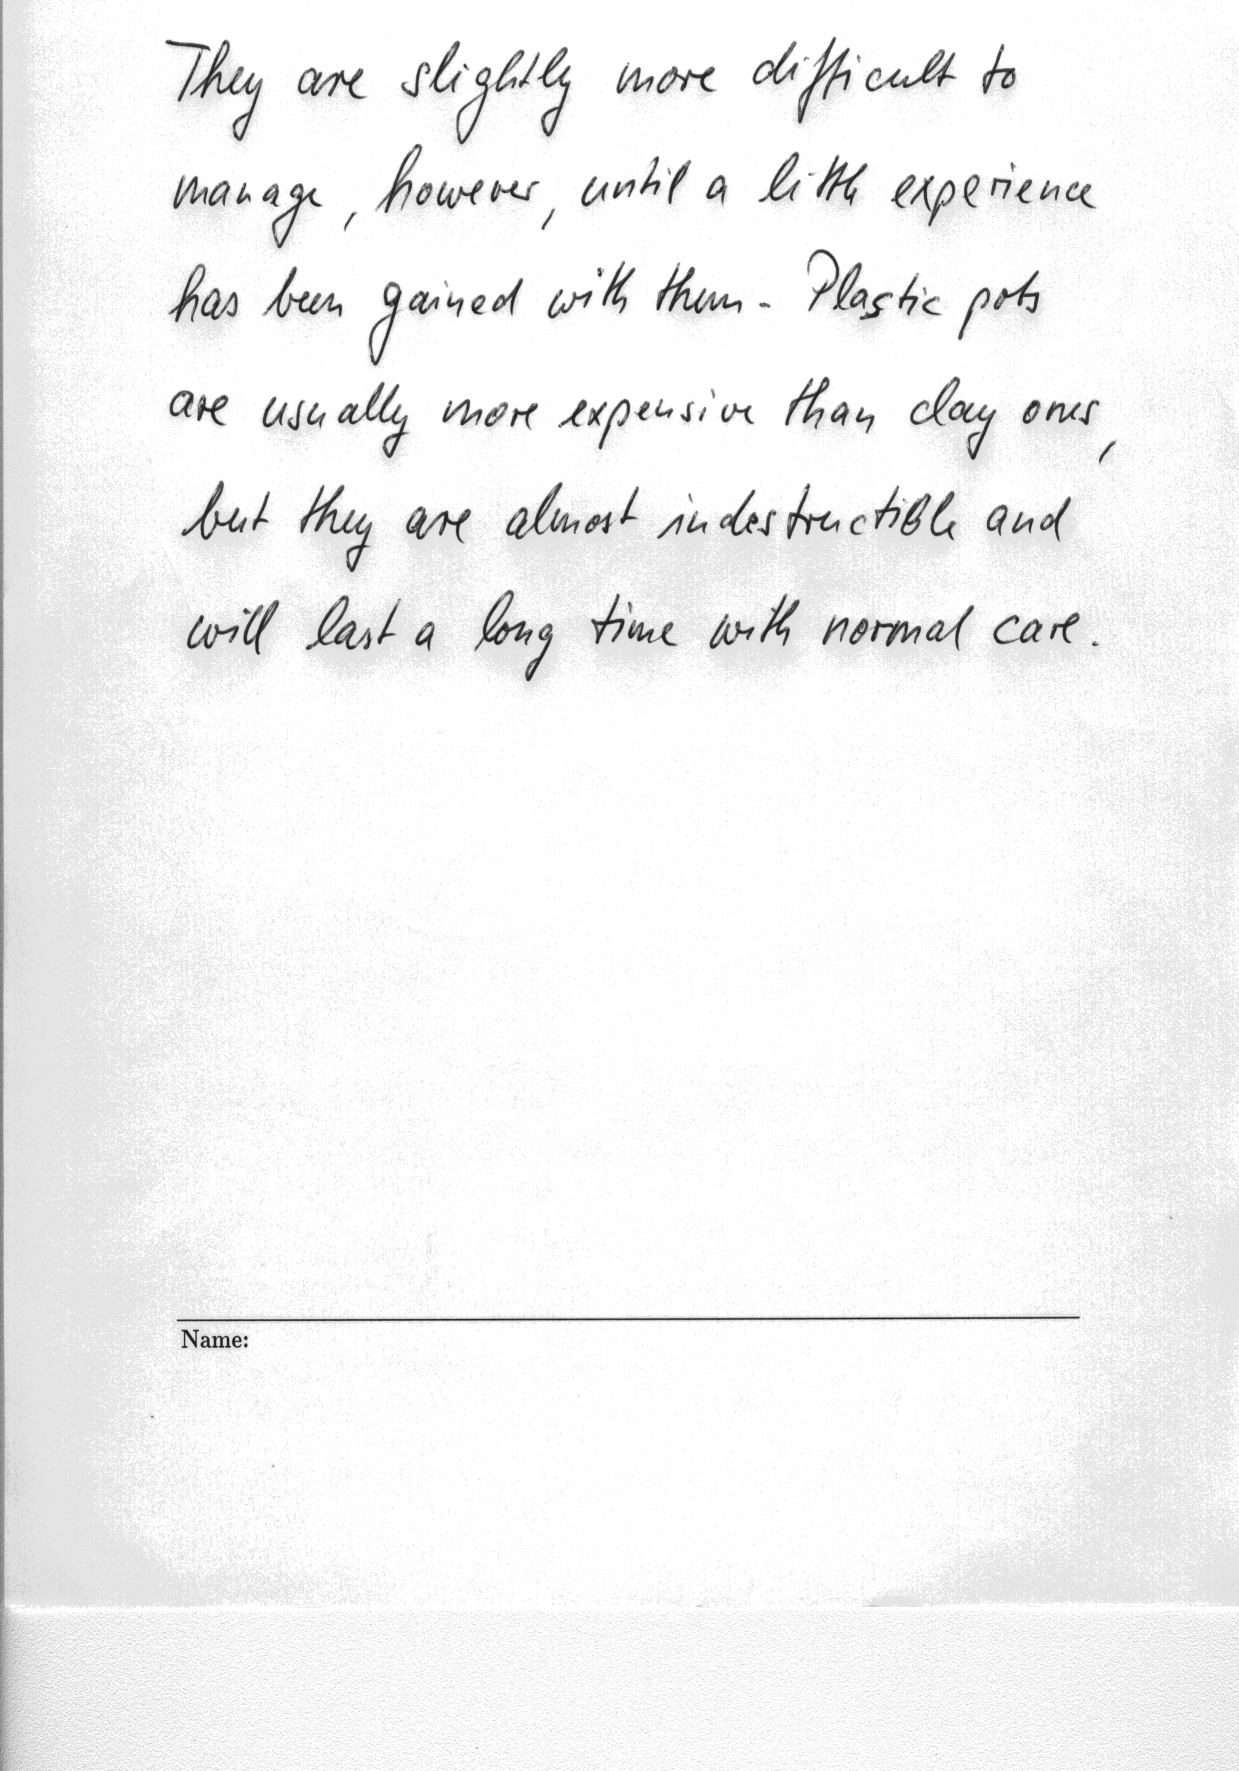 They are slightly more difficult to
manage, however, until a little experience
has been gained with them. Plastic pots
are usually more expensive than clay ones,
but they are almost indestructible and
will last a long time with normal care.
Name: